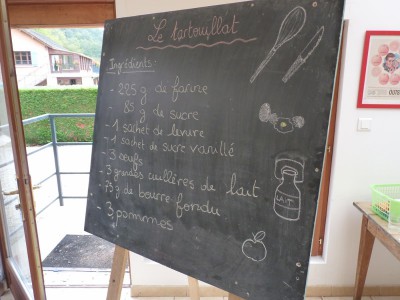 Le tertouillat
Ingrédients:
- 225 g de farine
- 85 g de sucre
- 1 sachet de levure
- 1 sachet de sucre vanillé
- 3 oeufs
- 3 grandes cuillères de lait
- 75 g de beurre fondu
- 3 pommes
LAIT